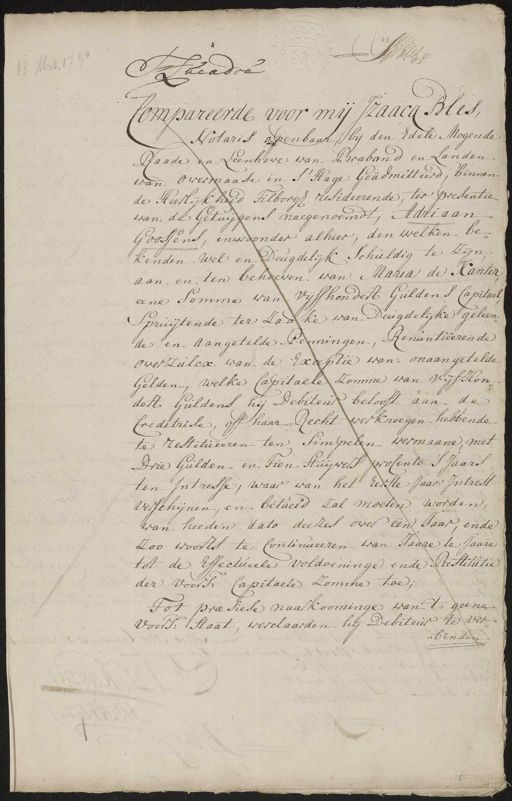 13 Mrt. 1790
Compareerde voor mij Izaacq Bles,
Notaris openbaar, bij den Edele Mogende
Raade en Leenhove van Braband en Landen
van Overmaase in S'Hage Geadmitteerd, binnen
de Heerlijkheid Tilborgh resideerende, ter presentie
van de Getuijgens naegenoemdt, Adriaan
Goossens, inwoonder alhier, den welken be-
kenden wel en Deugdelijk Schuldig te Zijn,
aan en ten behoeven van Maria de Kanter,
eene Somme van Vijfhondert Guldens Capitael
Spruijtende ter Zaake van Deugdelijke geleen-
de en aangetelde Penningen, Renuntiëerende
overzulcx van de Exceptie van onaangetelde
Gelden, welke Capitaele Zomme van Vijf Hon-
dert Guldens hij Debiteur belooft aan de
Creditrise, off haar Recht verkreegen hebbende
te restitueeren ten Simpelen vermaane, met
Drie Gulden en Tien Stuijvers prosento S'Jaars
ten Intresse, waar van het Eerste Jaar Intrest
Verschijnen, en betaeld zal moeten worden,
van heeden dato deezes over een Jaar, ende
Zoo voorts te Continueeren van Jaare te Jaare
tot de Effectueele voldoeninge ende Restitutie
der voorsz: Capitaele Zomme toe;
Tot præsiese naarkominge van 't geene
voorsz: Staat, verclaarden hij Debiteur te ver-
binden